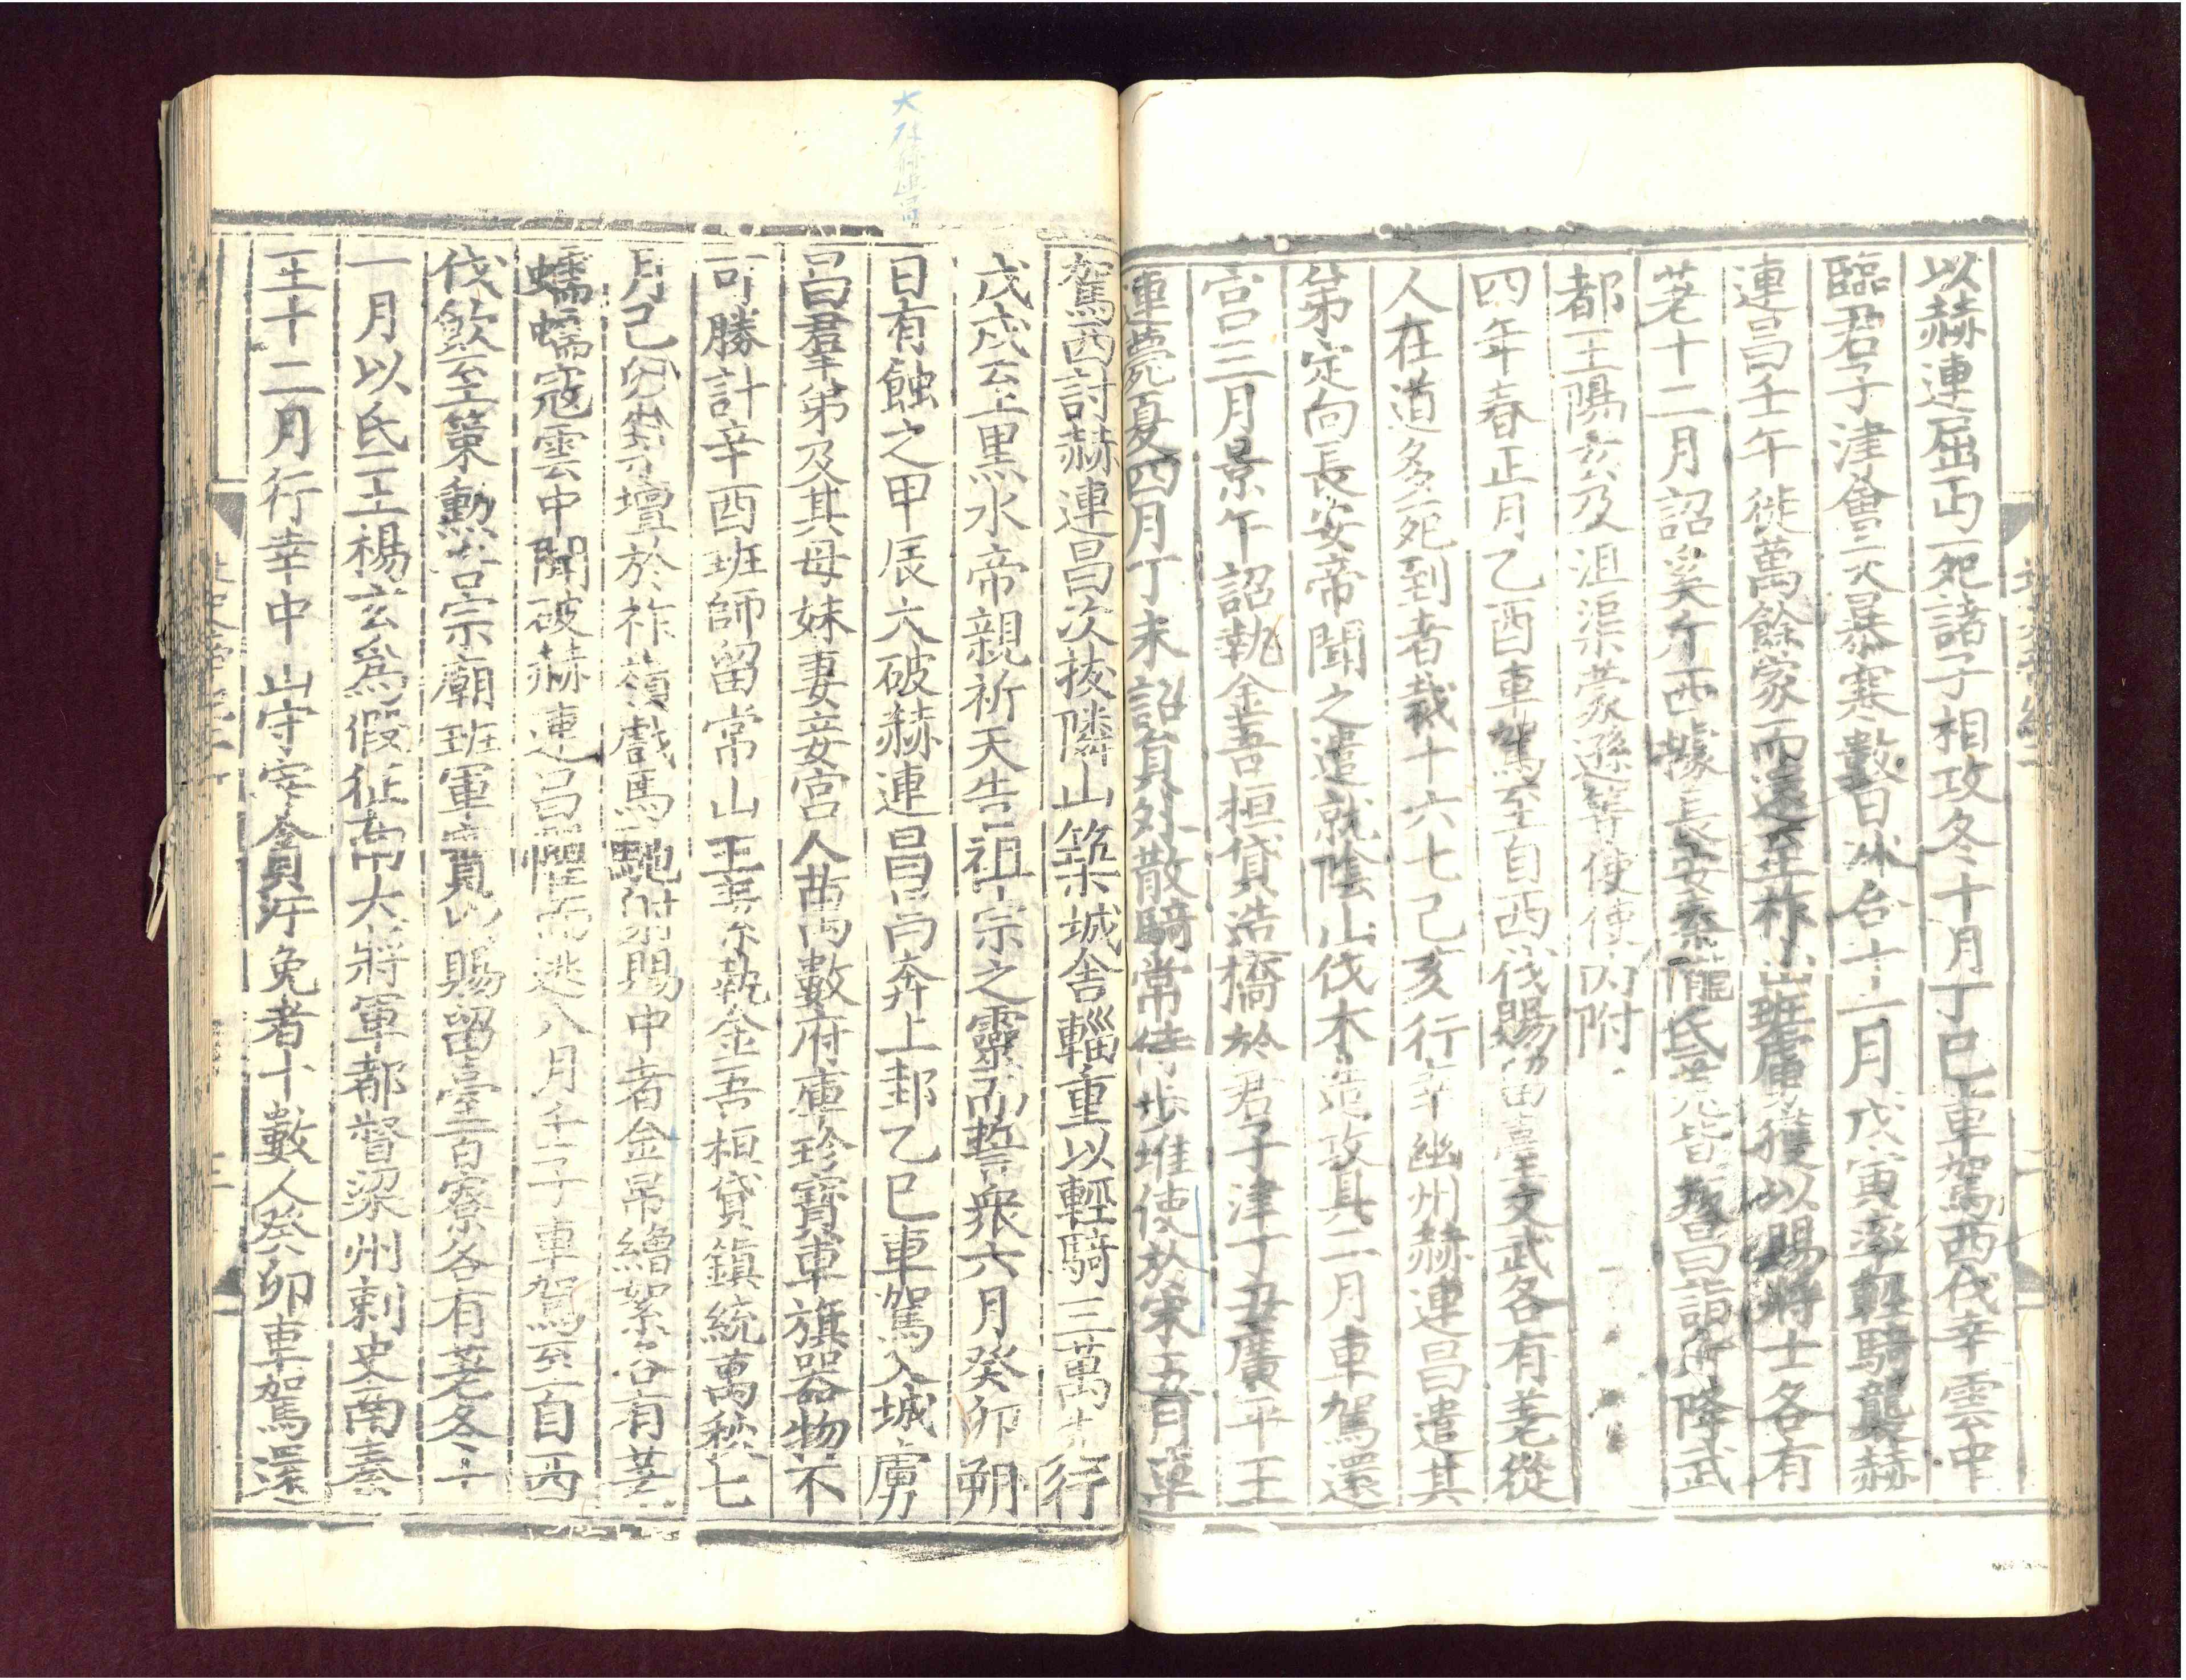 以赫連屈丐死諸子相攻冬十月丁巳車駕西伐幸雲中
臨君子津會天暴寒數日冰合十一月戊寅率輕騎襲赫
連昌壬午徙萬餘家而還至柞山班虜獲以賜將士各有
差十二月詔奚斤西據長安秦雍氐羌皆叛昌詣斤降武
都王陽玄及沮渠蒙遜等使使內附
四年春正月乙酉車駕至自西伐賜留臺文武各有差從
人在道多死到者裁十六七己亥行幸幽州赫連昌遣其
弟定向長安帝聞之遣就陰山伐木造攻具二月車駕還
宮三月景午詔執金吾桓貸造橋於君子津丁丑廣平王
連薨夏四月丁未詔員外散騎常侍步堆使於宋五月車
駕西討赫連昌次拔隣山築城舍輜重以輕騎三萬先行
戊戌至黑水帝親祈天告祖宗之靈而誓衆六月癸卯朔
日有蝕之甲辰大破赫連昌昌奔上邽乙巳車駕入城虜
昌羣弟及其母妹妻妾宮人萬數府庫珍寶車旗器物不
可勝計辛酉班師留常山王素執金吾桓貸鎮統萬秋七
月己卯築壇於祚嶺戲馬馳射賜中者金帛繒絮各有差
蠕蠕寇雲中聞破赫連昌懼而逃八月壬子車駕至自西
伐飲至策勳告宗廟班軍實以賜留臺百寮各有差冬十
一月以氐王楊玄爲假征南大將軍都督梁州刺史南秦
王十二月行幸中山守宰貪汙免者十數人癸卯車駕還